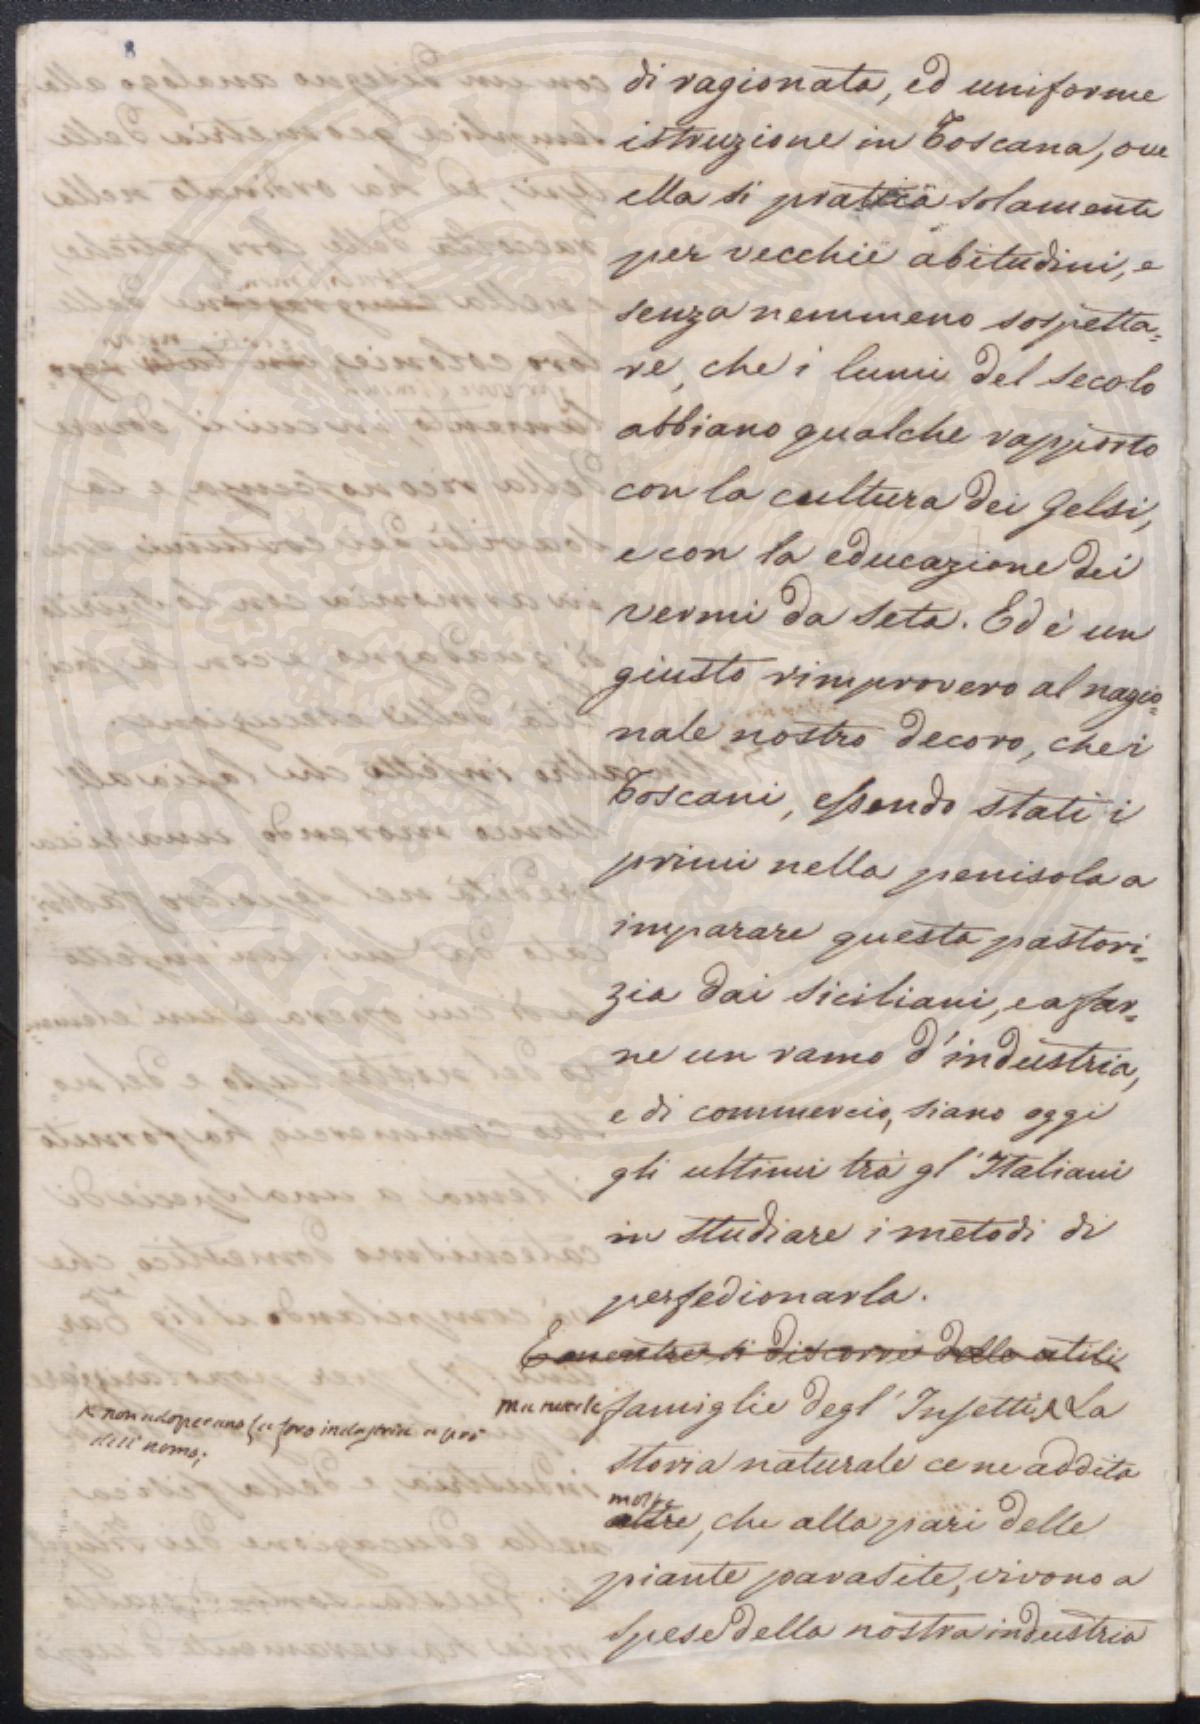 di ragionata, ed uniforme
istruzione in Toscana, ove
ella si pratica solamente
per vecchie abitudini, e
senza nemmeno sospetta=
re, che i lumi del secolo
abbiano qualche rapporto
con la cultura dei Gelsi,
e con la educazione dei
vermi da seta. Ed è un
giusto rimprovero al nazio=
nale nostro decoro, che i
Toscani, essendo stati i
primi nella penisola a
imparare questa pastori=
zia dai siciliani, e a far=
ne un ramo d'industria,
e di commercio, siano oggi
gli ultimi trà gl'Italiani
in studiare i metodi di
perfezionarla.
E mentre si discorre delle utili
famiglie degl'Insetti, La
non adoperano la loro industria a prò
dell'uomo;
storia naturale ce ne addita
molte
altre, che alla pari delle
piante parasite, vivono a
spese della nostra industria